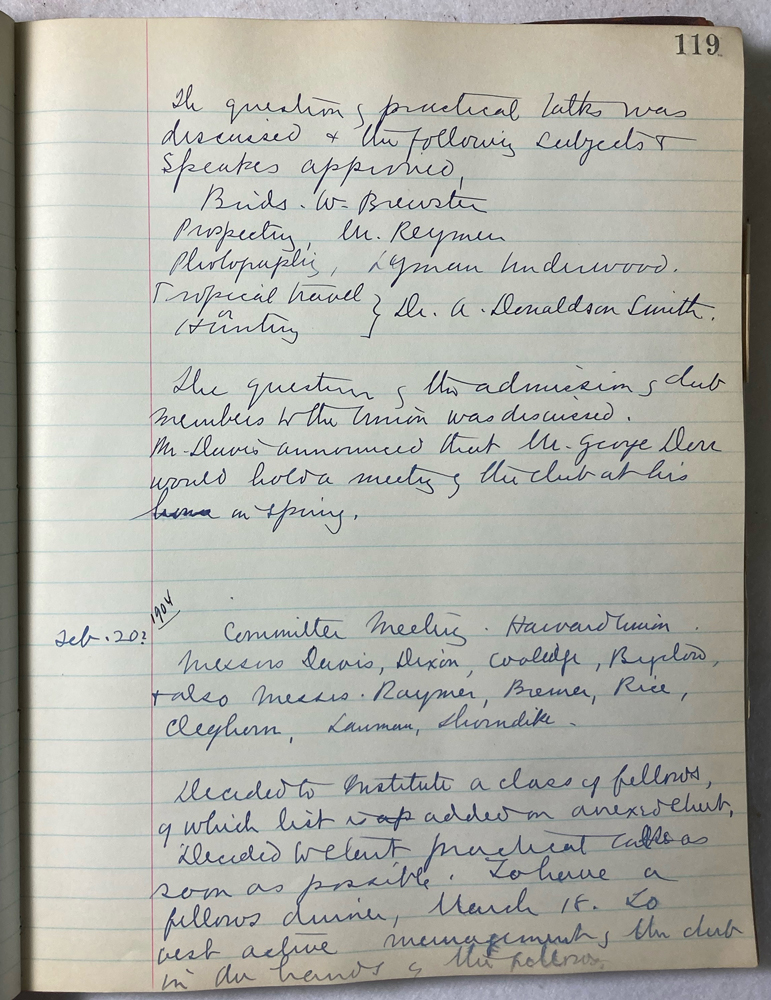 119
The question of practical talks was
discussed & the following subjects &
speakers approved,
Birds. W. Brewster
Prospecting, Mr. Raymer
Photography, Lyman Underwood.
Tropical travel
or } Dr. A. Donaldson Smith.
Hunting
The question of the admission of club
members to the Union was discussed.
Mr. Davis announced that Mr. George Dorr
would hold a meeting of the club at his
in Spring.
1904
Feb. 20? Committee Meeting. Harvard Union.
Messrs Davis, Dixon, Coolidge, Bigelow,
& also Messrs. Raymer, Bremer, Rice,
Cleghorn, Lawman, Thorndike.
Decided to Institute a class of fellows,
of which list is added on anexed sheet.
Decided to start practical talks as
soon as possible. To have a
fellows dinner, March 18. To
vest active management of the club
in the hands of the fellows.